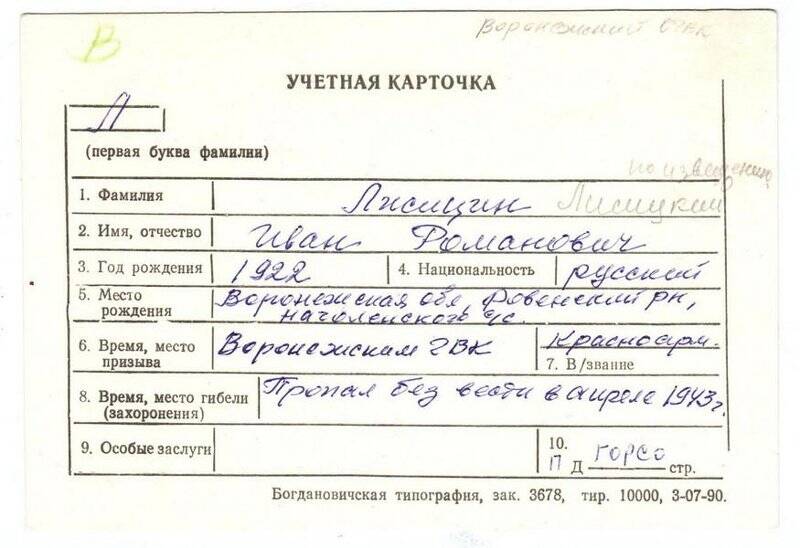 В
Воронежский ОГВК
УЧЕТНАЯ КАРТОЧКА
Л
(первая буква фамилии)
по извещению
1. Фамилия Лисицин Лисицкий
2. Имя, отчество Иван Романович
3. Год рождения 1922 4. Национальность русский
5. Место рождения Воронежская обл, Ровенский рн,
с/с.
6. Время, место призыва Воронежским ГВК
Красноарм.
7. В/звание
8. Время, место гибели (захоронения) Пропал без вести в апреле 1943г.
9. Особые заслуги
10.
П Д ГОРСО стр.
Богдановичская типография, зак. 3678, тир. 10000, 3-07-90.